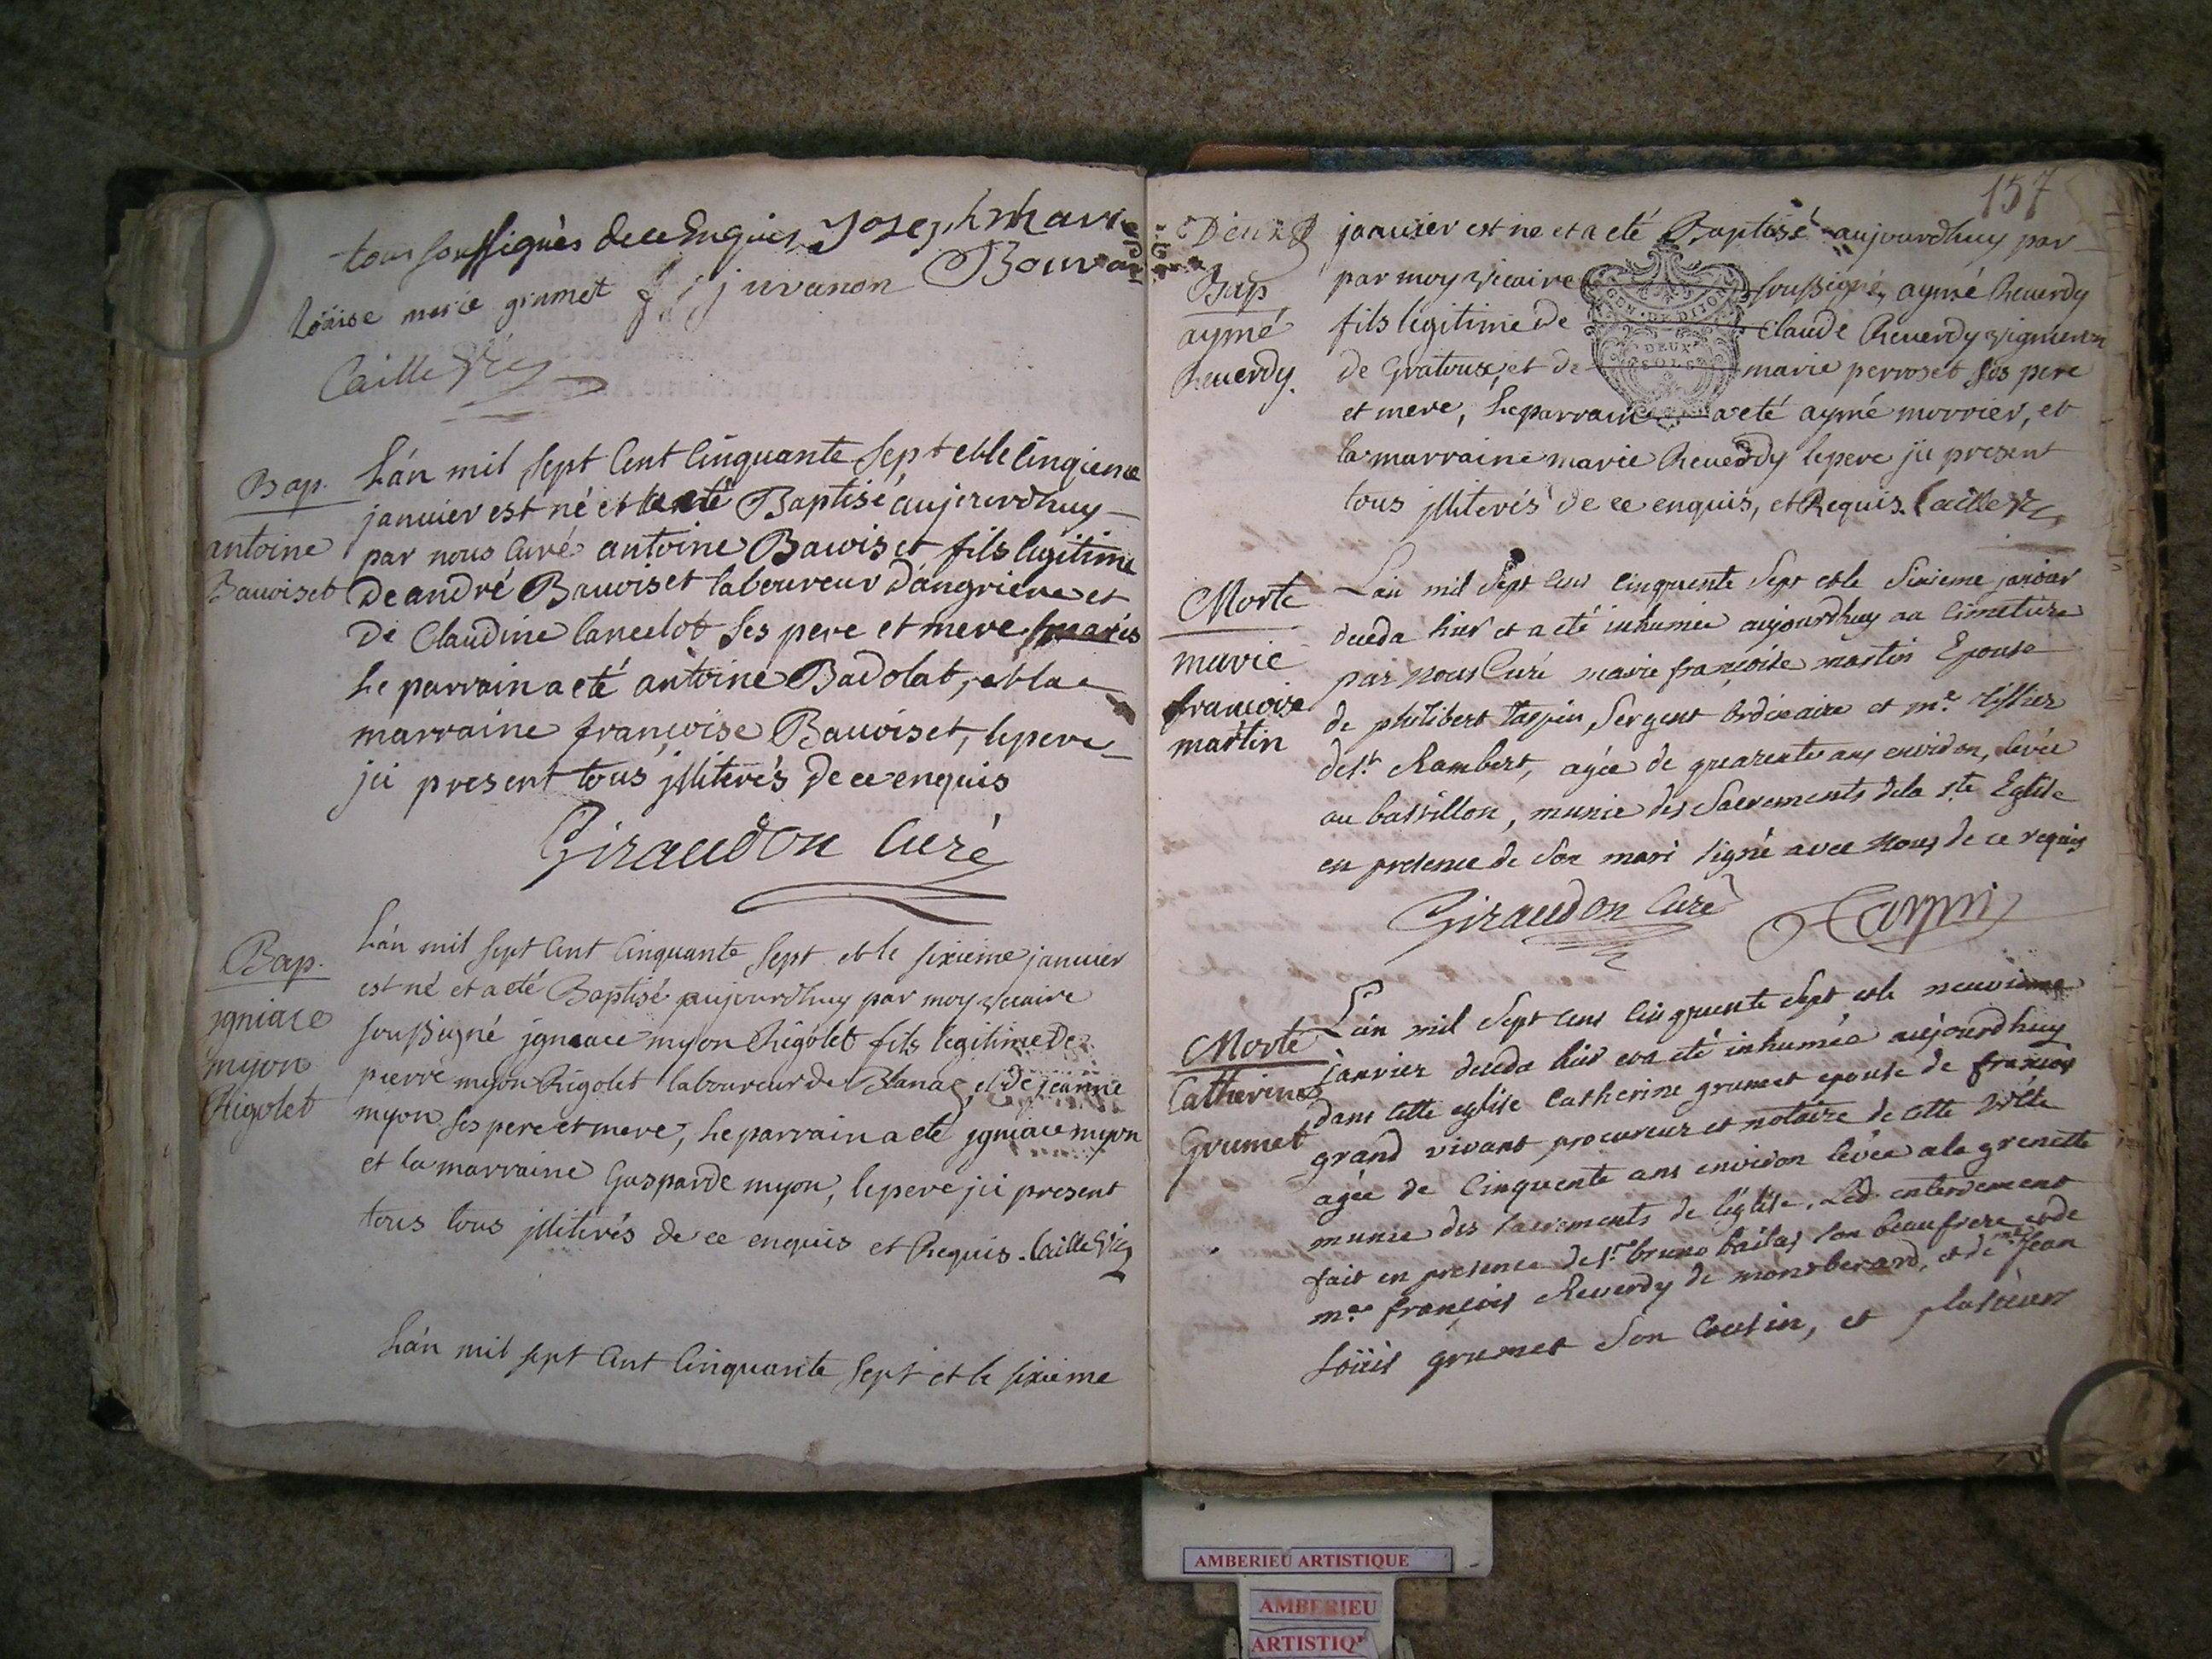 tous soussignés de ce Enquis Joseph marie
Louise marie grumet juvanon Bouvar
Caille Vic
Bap.
antoine
Bauoiset
L'án mil sept Cent Cinquante sept et le Cinqieme
januier est né et a eté Baptisé aujourdhuy
par nous Curé antoine Bauoiset fils legitime
De andré Bauoiset laboureur d'angrieres et
De Claudine lancelot ses pere et mere mariés
Le parrain a eté antoine Badolat, et la
marraine françoise Bauoiset, le pere
jci present tous jlliterés De ce enquis
Giraudon Curé
Bap.
jgniace
myon
Rigolet
L'án mil sept Cent Cinquante sept et le sixieme januier
est né et a eté Baptisé aujourdhuy par moy vicaire
soussigné jgniace myon Rigolet fils legitime De
pierre myon Rigolet laboureur de Blanaz, et De jeanne
myon ses pere et mere, Le parrain a eté jgniace myon
et la marraine Gasparde myon, le pere jci present
tous tous jlliterés de ce enquis et Requis. Caille Vic
L'án mil sept Cent Cinquante sept et le sixieme
157
Deux
Bap
aymé
Reuerdy.
januier est ne et a eté Baptisé aujourdhuy par
par moy vicaire soussigné, aymé Reuerdy
fils legitime De Claude Reuerdy vigneron
de Gratoux, et de marie perroset ses pere
et mere, Le parrain a eté aymé morrier, et
la marraine marie Reuerdy le pere jci present
tous jlliterés de ce enquis, et Requis. Caille Vic
GEN. DE DIJON
DEUX
SOLS
Morte
marie
françoise
martin
L'an mil sept cens cinquente sept et le sixieme janvier
deceda hier et a eté inhumée aujourdhuy au cimetiere
par nous Curé marie françoise martin Epouse
de philibert tarpin, sergent ordinaire et me. tissier
de st. Rambert, agée de quarente ans environ, levée
au batvillon, munie des sacrements de la ste Eglise
en presence de son mari signé avec nous de ce requis
Giraudon Curé Tarpin
Morte
Catherine
Grumet
L'án mil sept cens cinquente sept et le neuvieme
janvier deceda hier et a eté inhumée aujourdhuy
dans cette eglise Catherine grumet epouse de françois
grand vivant procureur et notaire de cette ville
agée de cinquente ans environ levée a la grenette
munie des sacrements de l'église. Led. enterrement
fait en presence de sr. bruno bailas son beaufrere et de
me. françois Reverdy de montberard, et de me Jean
Loüis grumet son cousin, et plusieurs
AMBERIEU ARTISTIQUE
AMBERIEU
ARTISTIQ